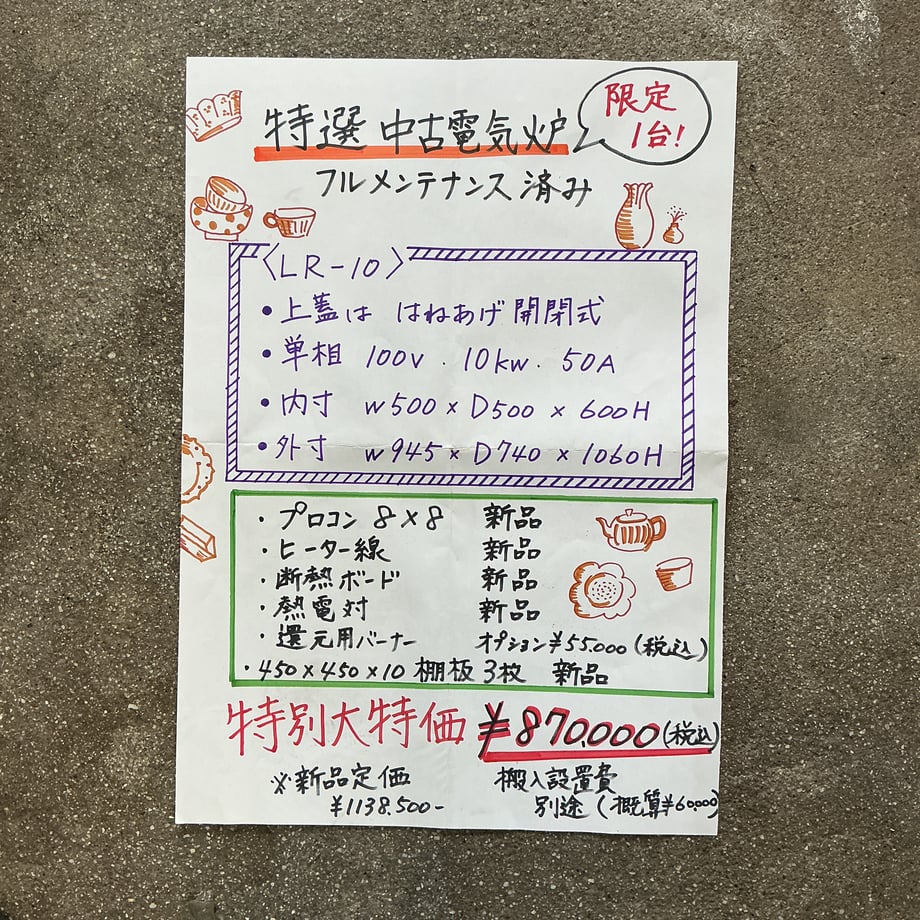 特選 中古電気炉
限定
1台!
フルメンテナンス済み
〈LR-10〉
・上蓋は はねあげ開閉式
・単相 100V . 10kw . 50A
・内寸 W500 × D500 × 600H
・外寸 W945 × D740 × 1060H
・プロコン 8×8 新品
・ヒーター線 新品
・断熱ボード 新品
・熱電対 新品
・還元用バーナー オプション¥55.000(税込)
・450×450×10 棚板 3枚 新品
特別大特価 ¥870.000(税込)
※新品定価
¥1138.500-
搬入設置費
別途(概算¥60.000)